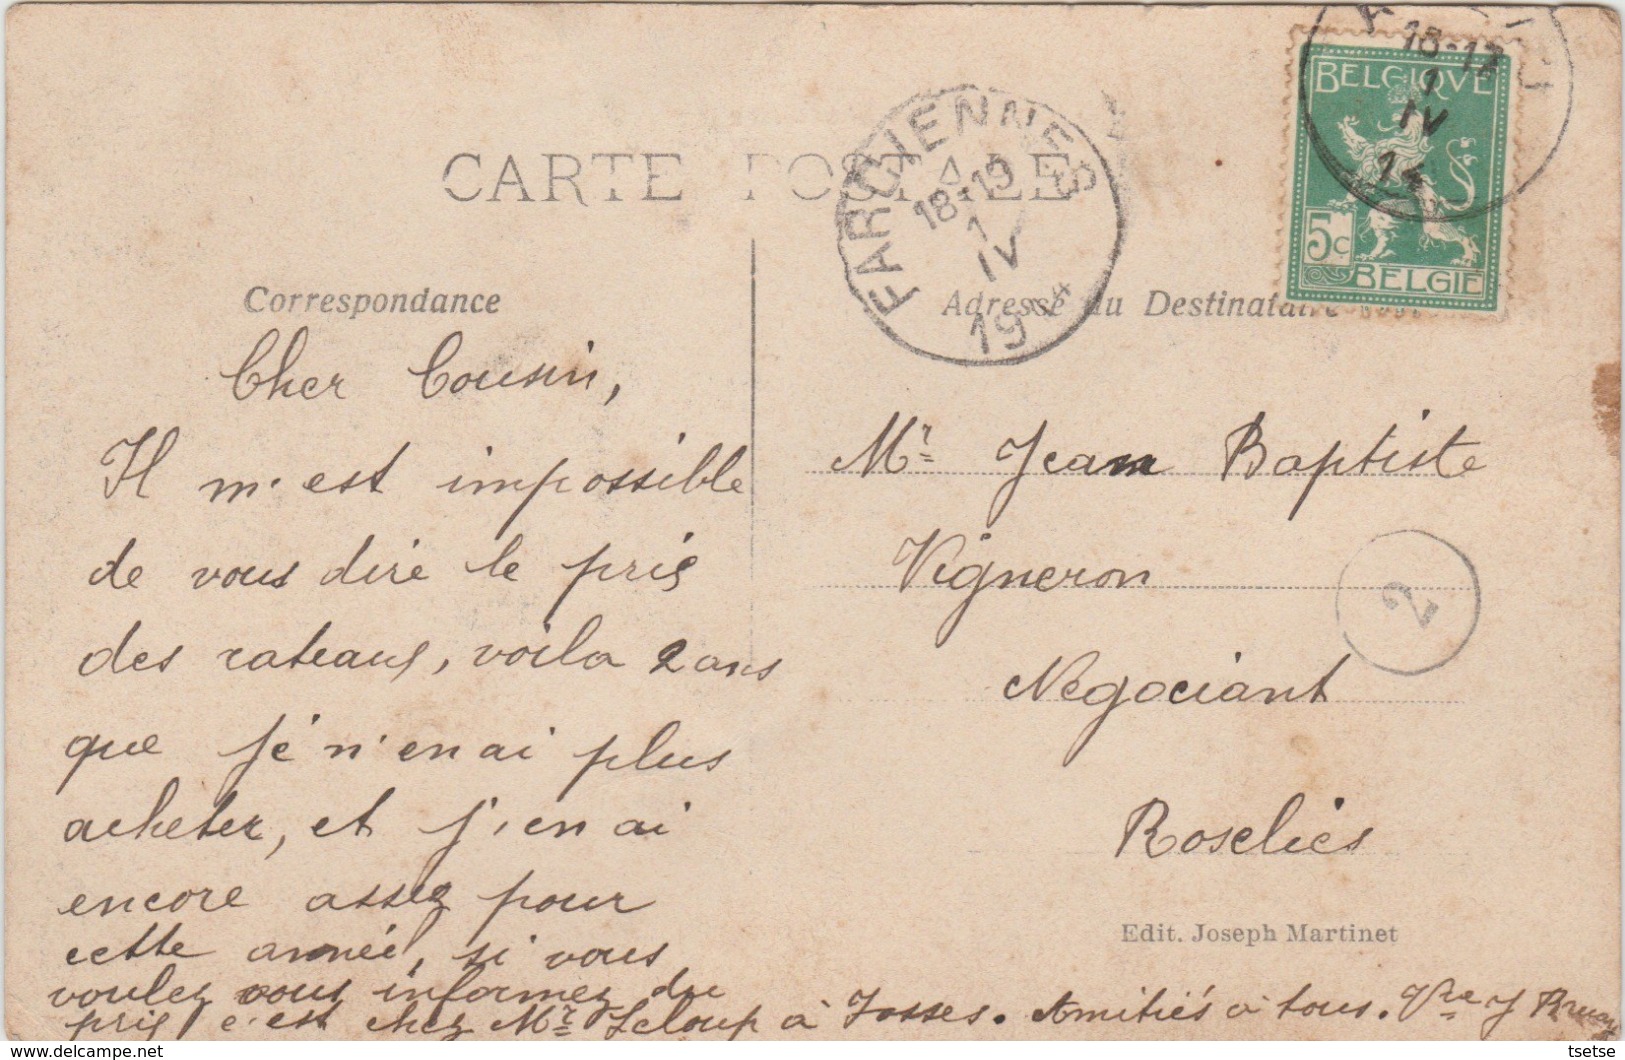 CARTE POSTALE
FARCIENNES
18-19
1
IV
1914
18-17
1
IV
14
BELGIQUE
5c
BELGIE
Correspondance
Adresse du Destinataire
Cher Cousin,
Il m'est impossible
de vous dire le pris
des rateaux, voila 2 ans
que je n'en ai plus
acheter, et j'en ai
encore assez pour
cette année, si vous
voulez vous informez du
pris c'est chez Mr Leloup à Tosses. Amitiés à tous. Vve J
Mr Jean Baptiste
Vigneron
Négociant
Roselies
2
Edit. Joseph Martinet
delcampe.net
tsetse